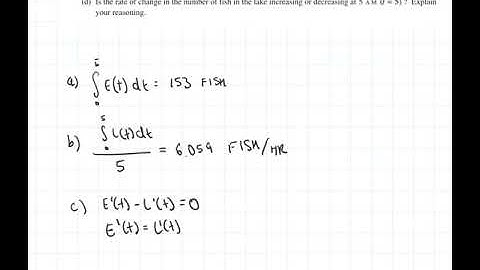 (d) Is the rate of change in the number of fish in the lake increasing or decreasing at 5 A.M. (t = 5)? Explain
your reasoning.
a) ∫₀⁵ E(t) dt = 153 FISH
b) ∫₀⁵ L(t) dt / 5 = 6.059 FISH/HR
c) E'(t) - L'(t) = 0
E'(t) = L'(t)